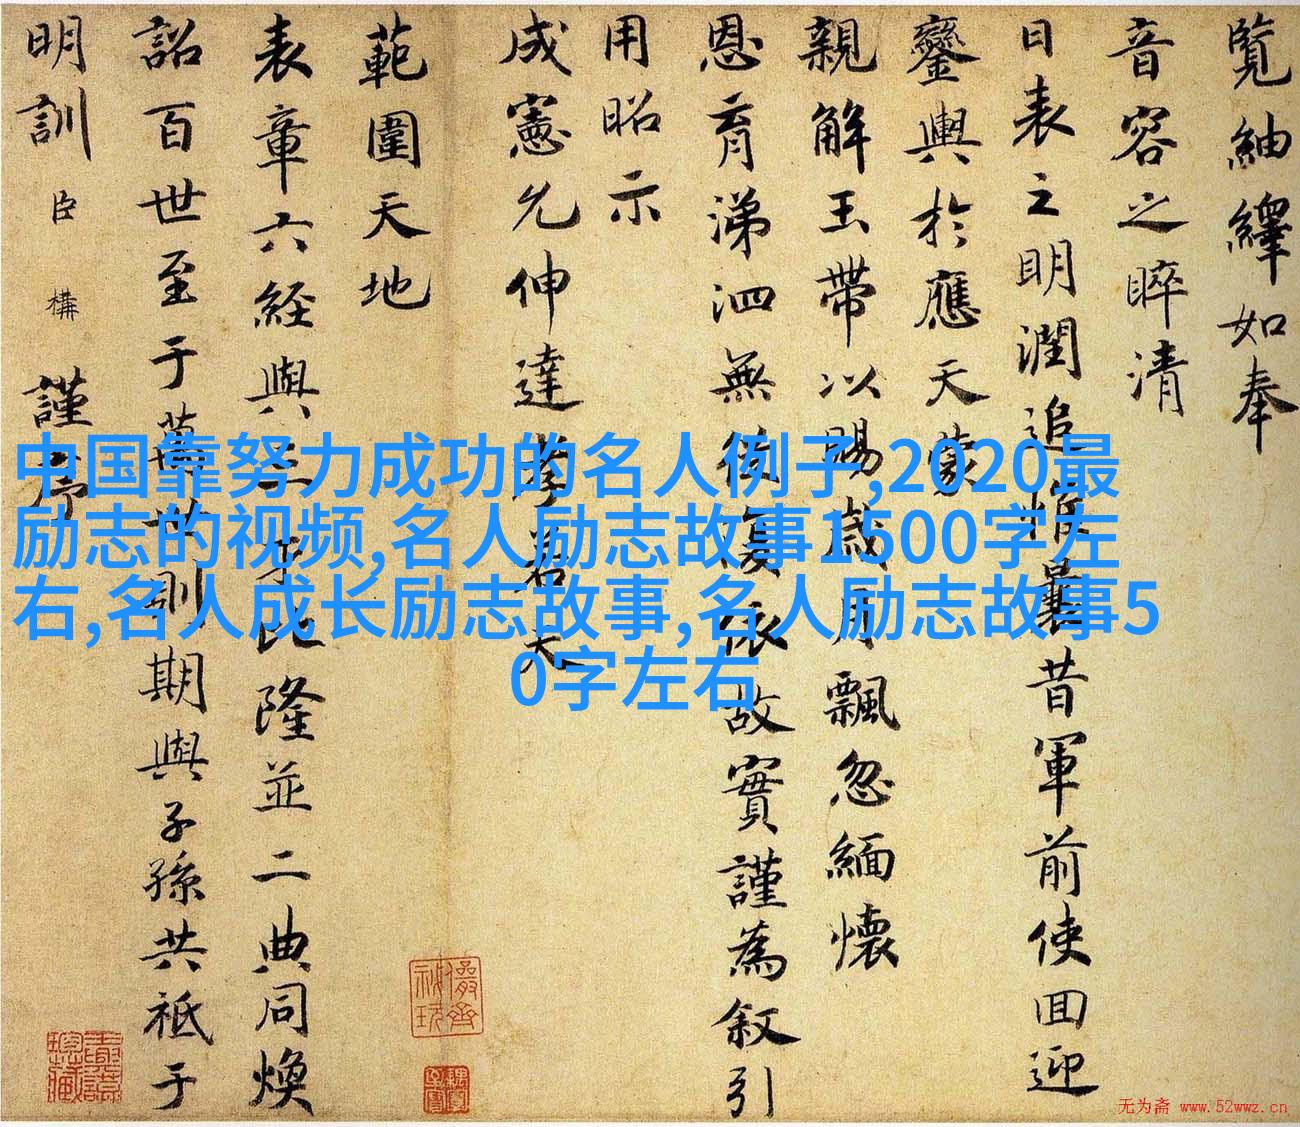 覽紬繹如奉
音容之睟清
日表之明潤追惟曩昔軍前使回迎
鑾輿於應天蒙
親解玉帶以賜歲月飄忽緬懷
恩育涕泗無從復依故實謹為叙引
用昭示
成憲允伸達孝若夫
範圍天地
表章六經與比隆並二典同煥
詔百世至于萬世則期與子孫共祗于
明訓臣構謹序
中国靠努力成功的名人例子,2020最
励志的视频,名人励志故事1500字左
右,名人成长励志故事,名人励志故事5
0字左右
无为斋 www.52wwz.cn